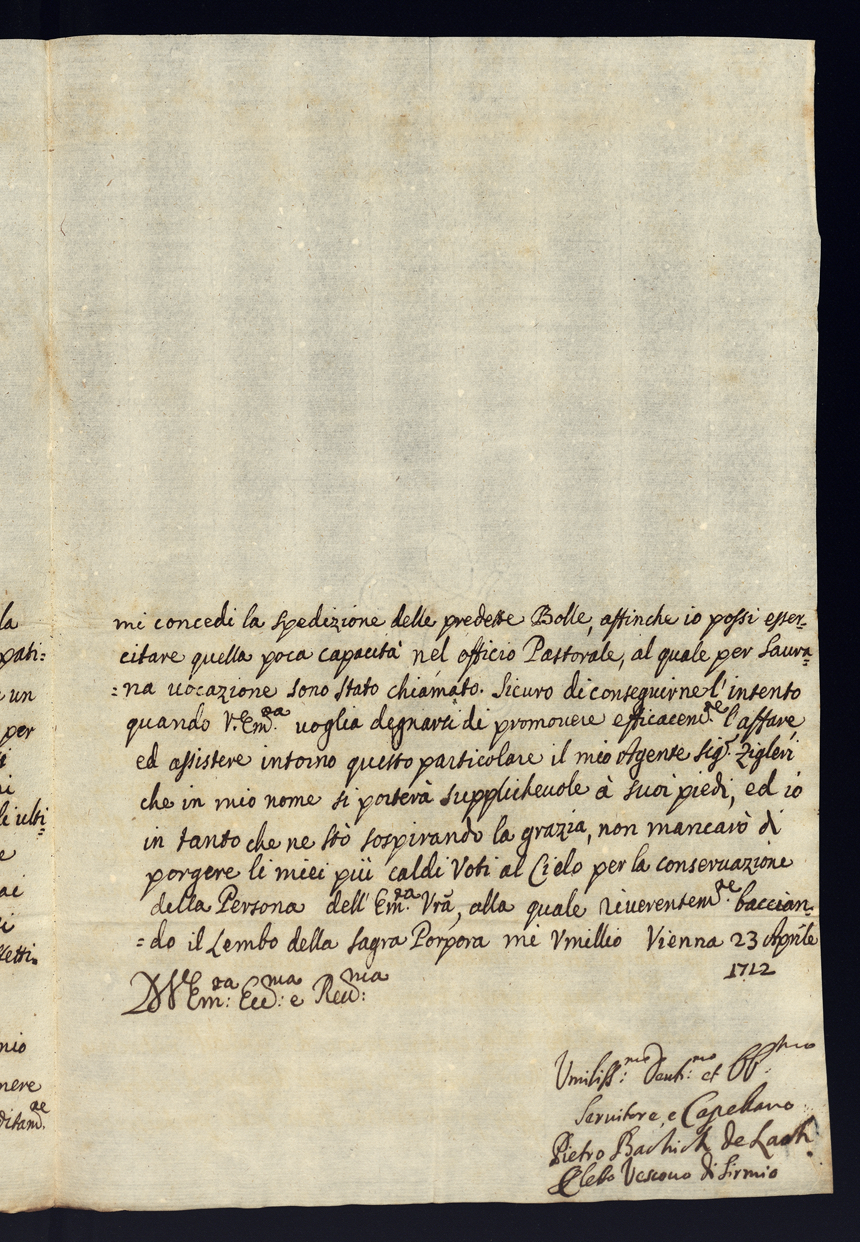 la
pati:
un
per
ulti:
mi concedi la spedizione delle predette Bolle, affinche io possi esser-
citare quella poca capacità nel officio Pastorale, al quale per Saura-
:na vocazione sono stato chiamato. Sicuro di conseguirne l'intento
quando V. Em.za voglia degnarsi di promovere efficacem.te l'affare
ed assistere intorno questo particolare il mio Agente Sig.r Zigleri
che in mio nome si porterà supplichevole à suoi piedi, ed io
in tanto che ne stò sospirando la grazia, non mancarò di
porgere li miei più caldi Voti al Cielo per la conservazione
della Persona dell'Em.za Vrã, alla quale riverentem.te baccian-
:do il Lembo della Sagra Porpora mi Vmillio Vienna 23 Aprile
1712
Em:za e Reu:ma
mere
Vmiliss:mo Deut:mo et
Servitore, e Capellano
Pietro Bachich de Lach
Eletto Vescouo di Sirmio